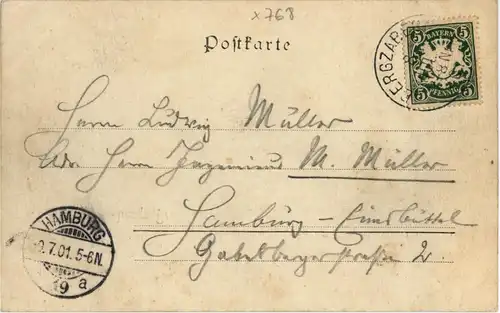 x768
Postkarte
BAYERN
5 5
5 PFENNIG 5
BERGZAB
Herrn Ludwig Müller
Adr. Herrn Ingenieur M. Müller
Hamburg - Eimsbüttel
strasse 2.
HAMBURG
.7.01. 5-6N.
19 a